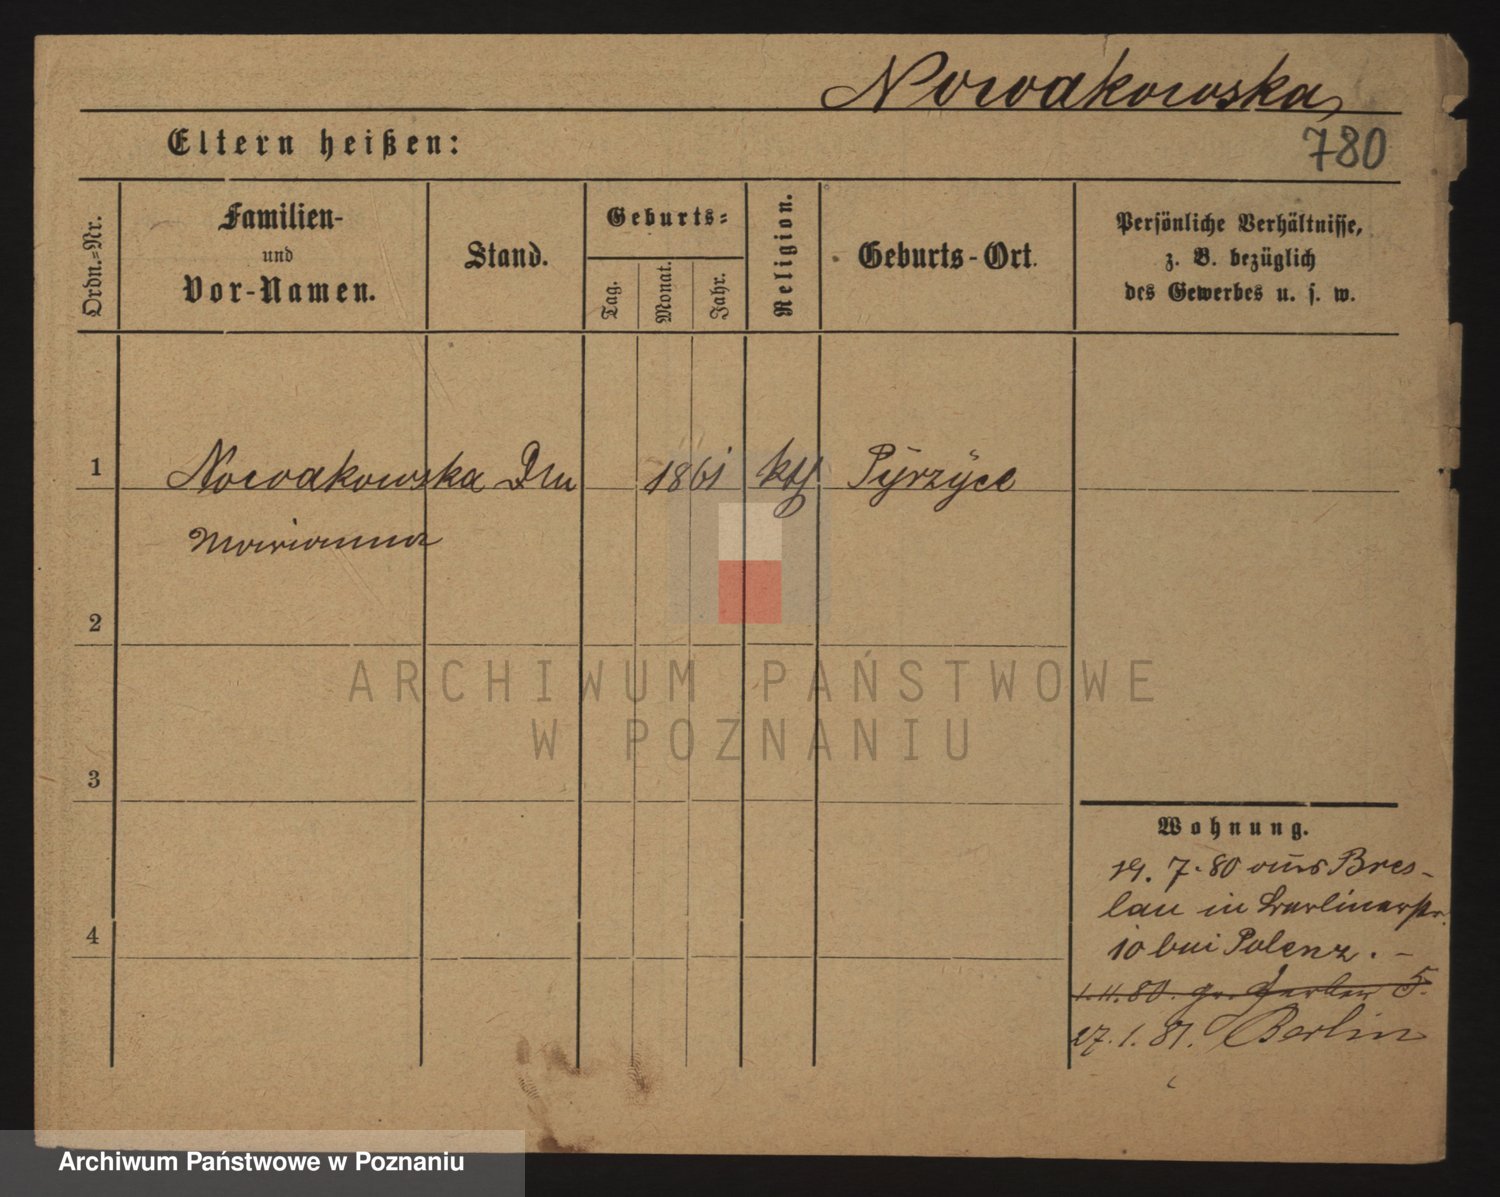 Nowakowska,
Eltern heißen:
780
Ordn.-Nr.
Familien-
und
Vor-Namen.
Stand.
Geburts-
Tag.
Monat.
Jahr.
Religion.
Geburts-Ort.
Persönliche Verhältnisse,
z. B. bezüglich
des Gewerbes u. s. w.
1
Nowakowska
1861
kth
Pyrzyce
Marianna
2
3
4
Wohnung.
19. 7. 80 aus Bres-
lau in Berlinerstr.
10 bei Polenz. -
1. 11. 80. gr. Gerber 5.
27. 1. 81. Berlin
ARCHIWUM PAŃSTWOWE
W POZNANIU
Archiwum Państwowe w Poznaniu